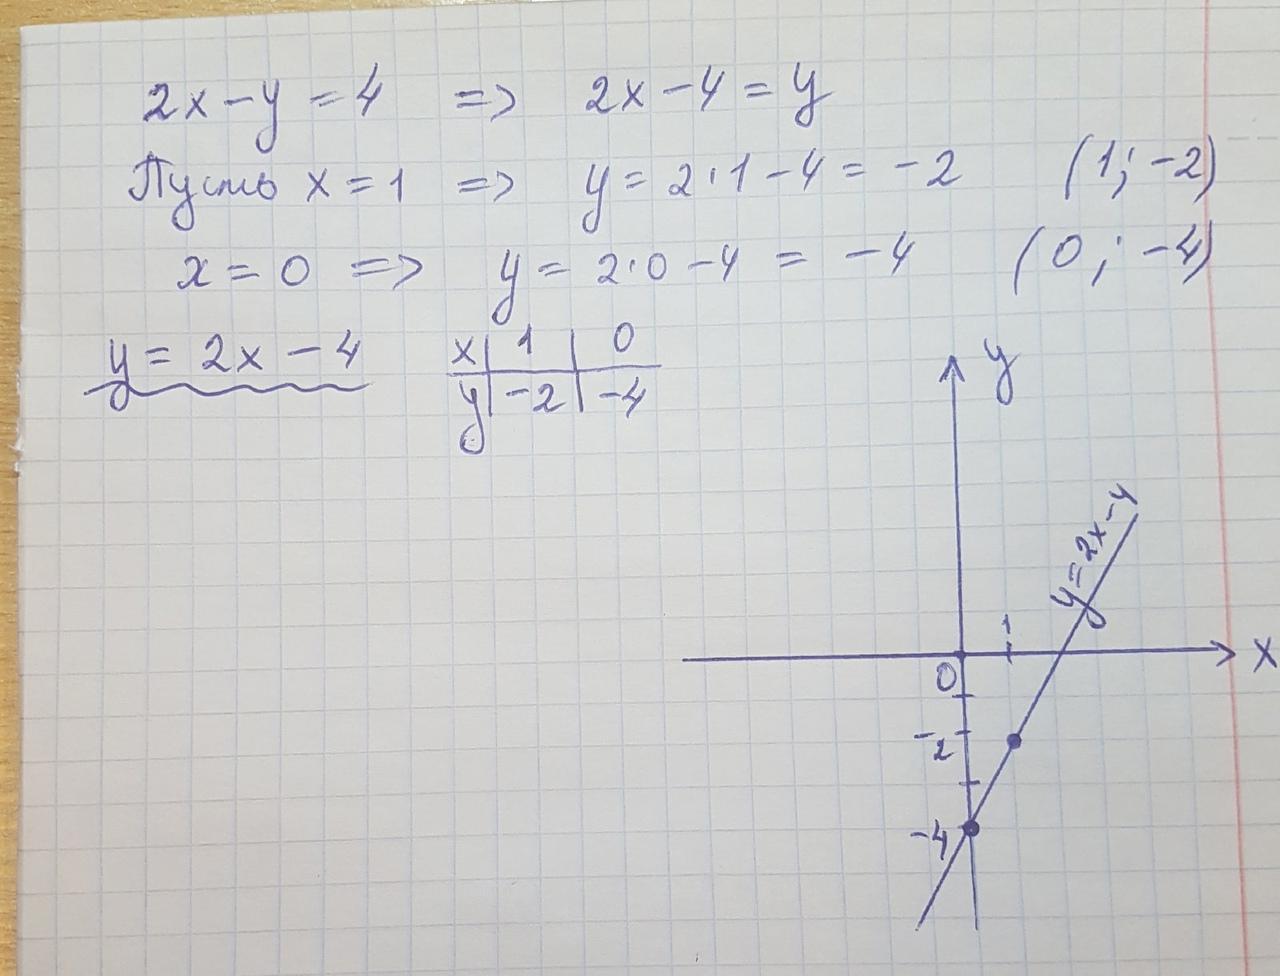 2x-y=4 => 2x-4=y
Пусть x=1 => y=2·1-4=-2 (1;-2)
x=0 => y=2·0-4=-4 (0;-4)
y=2x-4
x | 1 | 0
y | -2 | -4
y
y=2x-4
1
x
0
-2
-4